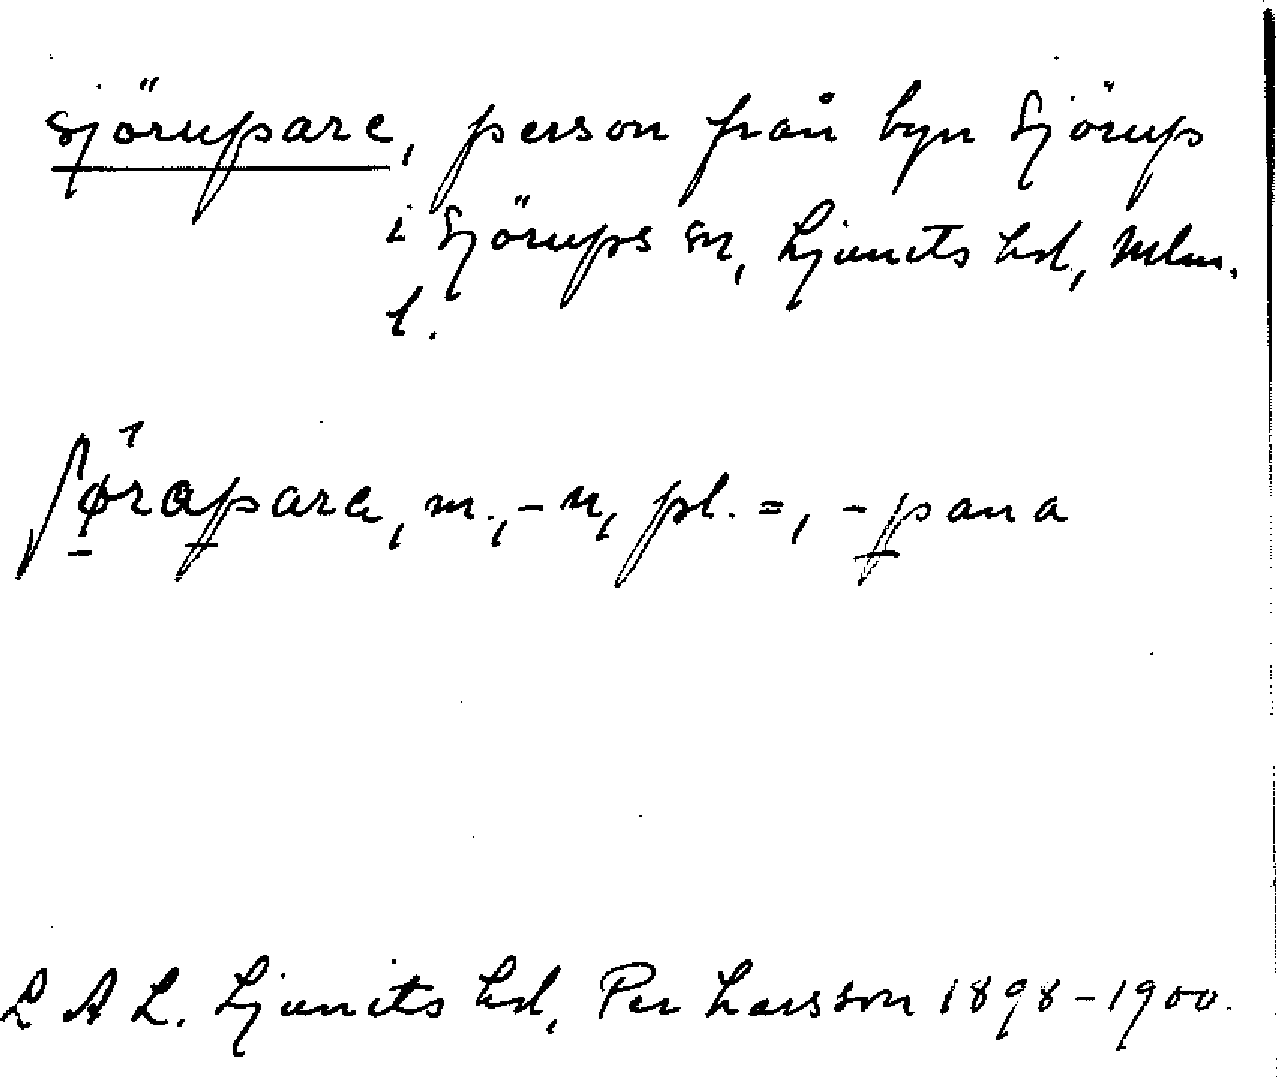 sjörupare, person från byn Sjörup
i Sjörups sn, Ljunits hd, Mlm.
l.
ʃø̠rapare, m., -n, pl. =, -pana
L A L. Ljunits hd, Per Larsson 1898-1900.